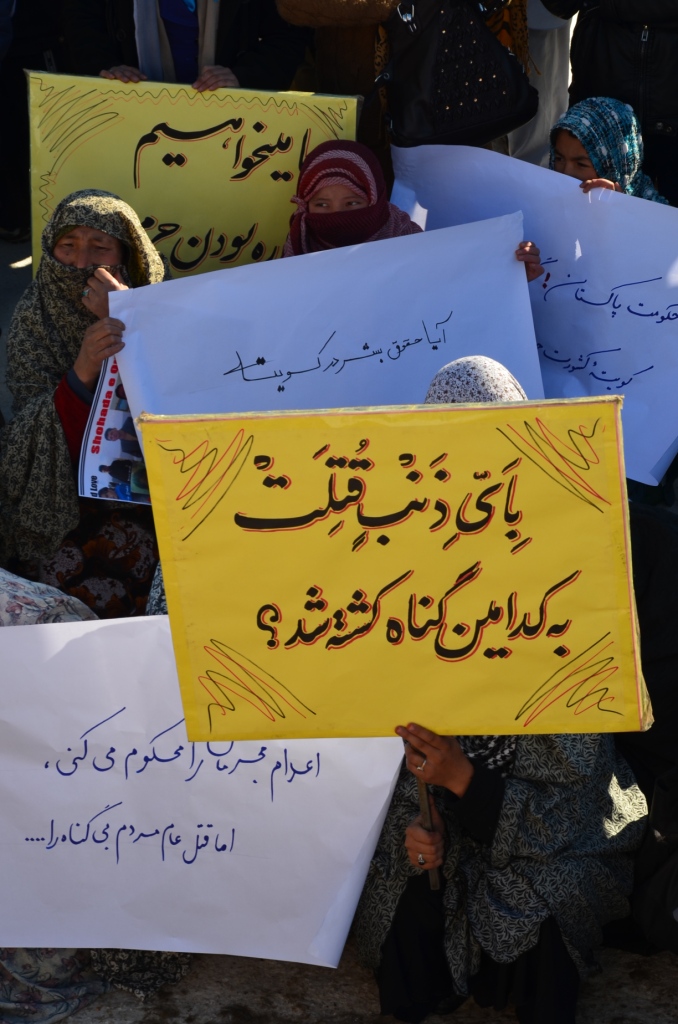 میخواهیم
ره بودن
آیا حقوق بشر در کویته
حکومت پاکستان!
کویته کشورت
Shohada e
d Love
بِاَیِّ ذَنْبٍ قُتِلَتْ
به کدامین گناه کشته شد؟
اعدام مجرمان را محکوم می کنی،
اما قتل عام مردم بی گناه را....